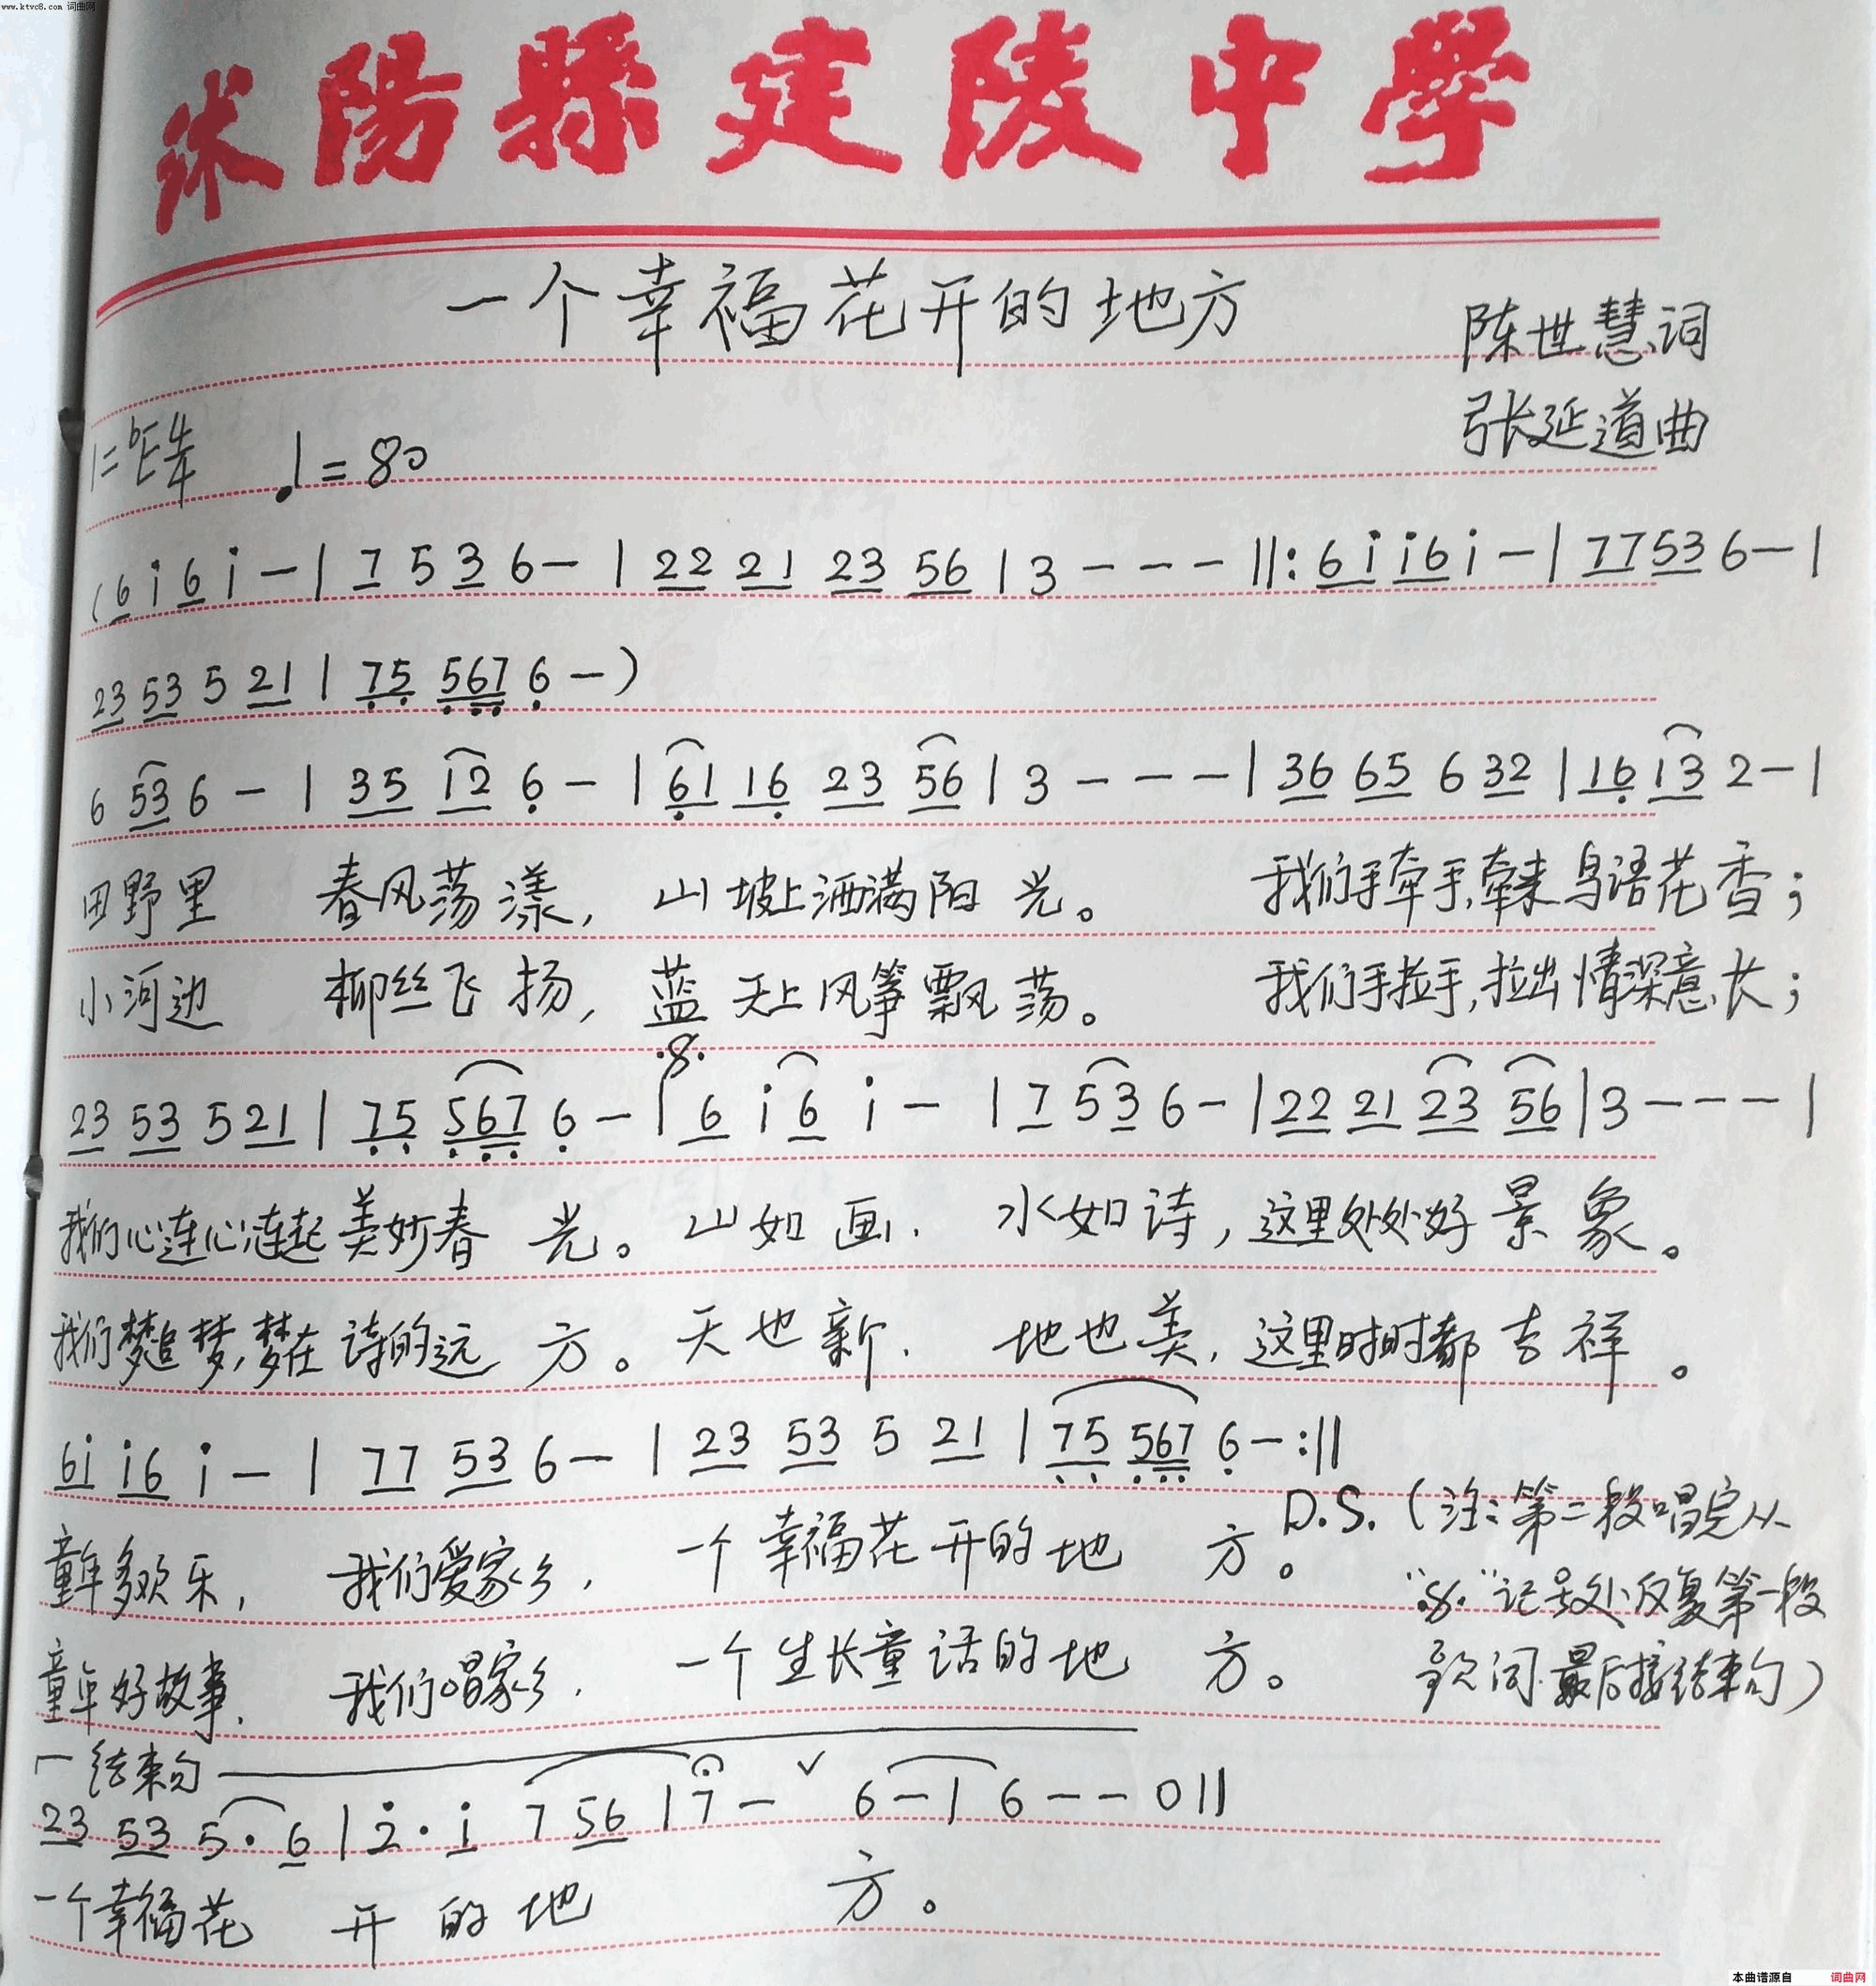 www.ktvc8.com 词曲网
沭陽縣建陵中學
一个幸福花开的地方
陈世慧词
张延道曲
1=♭E 4/4 ♩=80
(6 i 6 i - | 7 5 3 6 - | 22 21 23 56 | 3 - - - ||: 6i i6 i - | 77 53 6 - |
23 53 5 21 | 75 567 6 - )
6 53 6 - | 35 12 6 - | 61 16 23 56 | 3 - - - | 36 65 6 32 | 16 13 2 - |
田野里 春风荡漾, 山坡上洒满阳光。 我们手牵手,牵来鸟语花香;
小河边 柳丝飞扬, 蓝天上风筝飘荡。 我们手拉手,拉出情深意长;
23 53 5 21 | 75 567 6 - | 6 i 6 i - | 7 53 6 - | 22 21 23 56 | 3 - - - |
我们心连心,连起美妙春光。山如画, 水如诗,这里处处好景象。
我们梦追梦,梦在诗的远方。天也新, 地也美,这里时时都吉祥。
6i i6 i - | 77 53 6 - | 23 53 5 21 | 75 567 6 - :||
童年多欢乐, 我们爱家乡, 一个幸福花开的地方。
童年好故事, 我们唱家乡, 一个生长童话的地方。
D.S.(注:第二段唱完从
"𝄋"记号处反复第一段
歌词最后接结束句)
结束句
23 53 5· 6 | 2· i 7 56 | 7 - ˅ 6 - | 6 - - 0 ||
一个幸福花 开的地 方。
本曲谱源自 词曲网